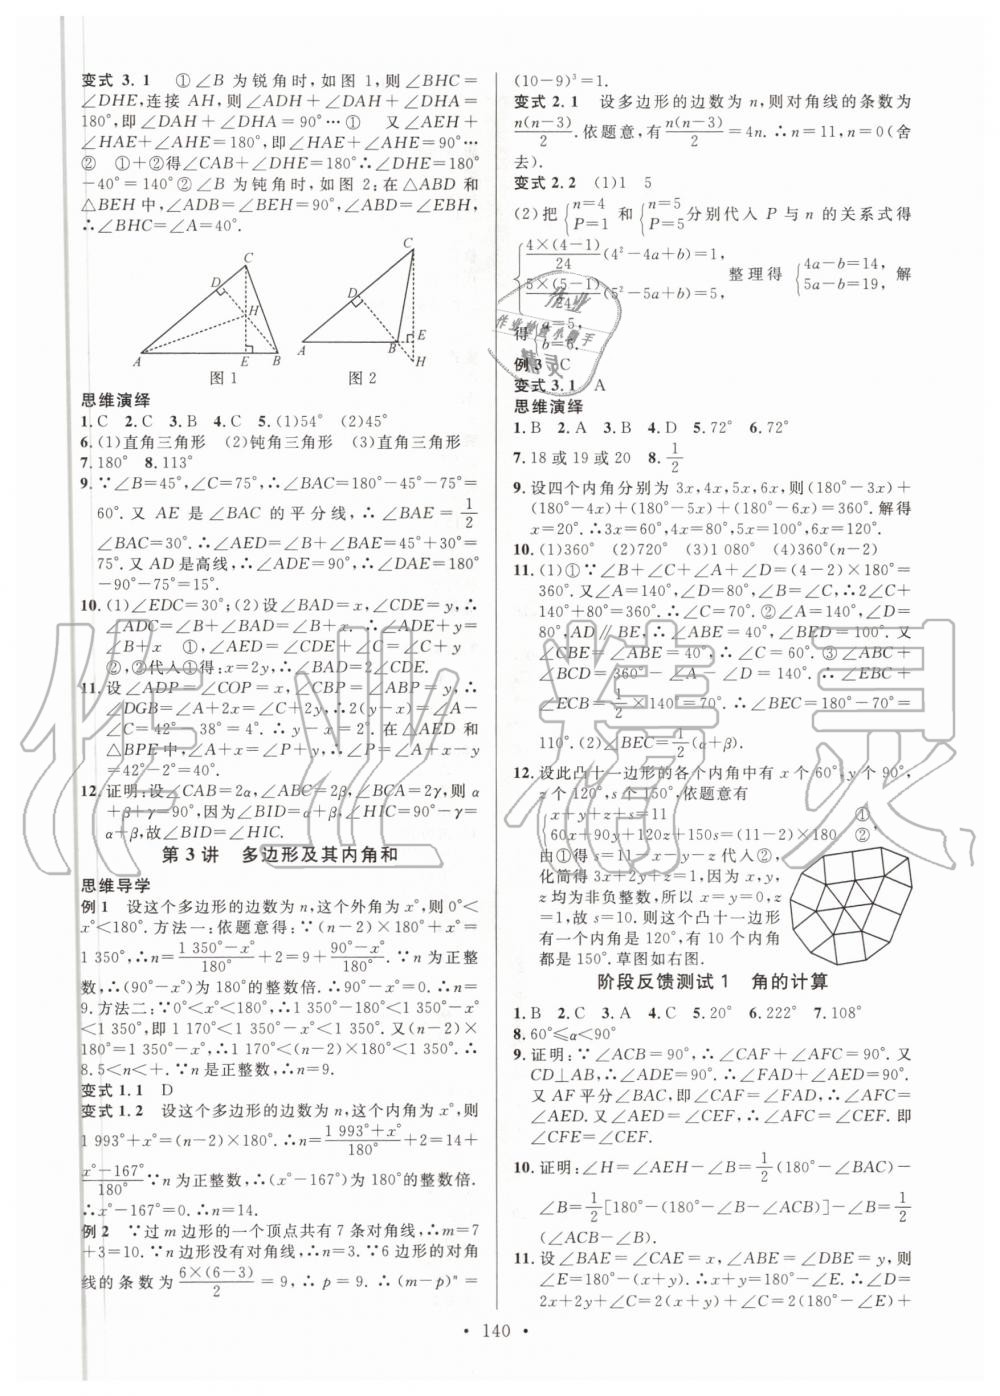 变式 3. 1　①∠B 为锐角时,如图 1,则∠BHC=
∠DHE,连接 AH,则∠ADH+∠DAH+∠DHA=
180°,即∠DAH+∠DHA=90°…①　又∠AEH+
∠HAE+∠AHE=180°,即∠HAE+∠AHE=90°…
②　①+②得∠CAB+∠DHE=180°∴∠DHE=180°
-40°=140°②∠B 为钝角时,如图 2:在△ABD 和
△BEH 中,∠ADB=∠BEH=90°,∠ABD=∠EBH,
∴∠BHC=∠A=40°.
C D H A E B
图 1
C D A B E H
图 2
思维演绎
1. C　2. C　3. B　4. C　5. (1)54°　(2)45°
6. (1)直角三角形　(2)钝角三角形　(3)直角三角形
7. 180°　8. 113°
9. ∵∠B=45°,∠C=75°,∴∠BAC=180°-45°-75°=
60°. 又 AE 是∠BAC 的平分线,∴∠BAE=1/2
∠BAC=30°. ∴∠AED=∠B+∠BAE=45°+30°=
75°. 又 AD 是高线,∴∠ADE=90°,∴∠DAE=180°
-90°-75°=15°.
10. (1)∠EDC=30°;(2)设∠BAD=x,∠CDE=y,∴
∠ADC=∠B+∠BAD=∠B+x. ∴∠ADE+y=
∠B+x　①,∠AED=∠CDE+∠C=∠C+y
②,②代入①得:x=2y,∴∠BAD=2∠CDE.
11. 设∠ADP=∠CDP=x,∠CBP=∠ABP=y,∴
∠DGB=∠A+2x=∠C+2y,∴2(y-x)=∠A-
∠C=42°-38°=4°. ∴y-x=2°. 在△AED 和
△BPE 中,∠A+x=∠P+y,∴∠P=∠A+x-y
=42°-2°=40°.
12. 证明:设∠CAB=2α,∠ABC=2β,∠BCA=2γ,则α
+β+γ=90°,因为∠BID=α+β,∠HIC=90°-γ=
α+β,故∠BID=∠HIC.
第 3 讲　多边形及其内角和
思维导学
例 1　设这个多边形的边数为 n,这个外角为 x°,则 0°<
x°<180°. 方法一:依题意得:∵(n-2)×180°+x°=
1 350°,∴n=(1 350°-x°)/180°+2=9+(90°-x°)/180°. ∵n 为正整
数,∴(90°-x°)为 180°的整数倍. ∴90°-x°=0. ∴n=
9. 方法二:∵0°<x°<180°,∴1 350°-180°<1 350°-x°
<1 350°,即 1 170°<1 350°-x°<1 350°. 又(n-2)×
180°=1 350°-x°,∴1 170°<(n-2)×180°<1 350°. ∴
8.5<n<+. ∵n 是正整数,∴n=9.
变式 1. 1　D
变式 1. 2　设这个多边形的边数为 n,这个内角为 x°,则
1 993°+x°=(n-2)×180°. ∴n=(1 993°+x°)/180°+2=14+
(x°-167°)/180°∵n 为正整数,∴(x°-167°)为 180°的整数倍.
∴x°-167°=0. ∴n=14.
例 2　∵过 m 边形的一个顶点共有 7 条对角线,∴m=7
+3=10. ∵n 边形没有对角线,∴n=3. ∵6 边形的对角
线的条数为 6×(6-3)/2 = 9, ∴ p = 9. ∴ (m-p)ⁿ =
(10-9)³=1.
变式 2. 1　设多边形的边数为 n,则对角线的条数为
n(n-3)/2. 依题意,有 n(n-3)/2=4n. ∴n=11,n=0(舍
去).
变式 2. 2　(1)1　5
(2)把{n=4 P=1 和{n=5 P=5 分别代入 P 与 n 的关系式得
{4×(4-1)/24(4²-4a+b)=1,
5×(5-1)/24(5²-5a+b)=5, 整理得{4a-b=14, 5a-b=19, 解
得{a=5, b=6.
例 3　C
变式 3. 1　A
思维演绎
1. B　2. A　3. B　4. D　5. 72°　6. 72°
7. 18 或 19 或 20　8. 1/2
9. 设四个内角分别为 3x,4x,5x,6x,则(180°-3x)+
(180°-4x)+(180°-5x)+(180°-6x)=360°. 解得
x=20°. ∴3x=60°,4x=80°,5x=100°,6x=120°.
10. (1)360°　(2)720°　(3)1 080°　(4)360°(n-2)
11. (1)①∵∠B+∠C+∠A+∠D=(4-2)×180°=
360°. 又∠A=140°,∠D=80°,∠B=∠C,∴2∠C+
140°+80°=360°. ∴∠C=70°. ②∠A=140°,∠D=
80°,AD∥BE,∴∠ABE=40°,∠BED=100°. 又
∠CBE=∠ABE=40°,∴∠C=60°. ③∠ABC+
∠BCD=360°-∠A-∠D=140°. ∴∠EBC+
∠ECB=1/2×140°=70°. ∴∠BEC=180°-70°=
110°. (2)∠BEC=1/2(α+β).
12. 设此凸十一边形的各个内角中有 x 个 60°,y 个 90°,
z 个 120°,s 个 150°,依题意有
{x+y+z+s=11　①
60x+90y+120z+150s=(11-2)×180　②
由①得 s=11-x-y-z 代入②,
化简得 3x+2y+z=1,因 x,y,
z 均为非负整数,所以 x=y=0,
z=1,故 s=10. 则这个凸十一边形
有一个内角是 120°,有 10 个内角
都是 150°. 草图如右图.
阶段反馈测试 1　角的计算
1. B　2. C　3. A　4. C　5. 20°　6. 222°　7. 108°
8. 60°≤α<90°
9. 证明:∵∠ACB=90°,∴∠CAF+∠AFC=90°. 又
CD⊥AB,∴∠ADE=90°. ∴∠FAD+∠AED=
90°. 又 AF 平分∠BAC,即∠CAF=∠FAD,∴∠AFC=
∠AED. 又∠AED=∠CEF,∴∠AFC=∠CEF. 即
∠CFE=∠CEF.
10. 证明:∠H=∠AEH-∠B=1/2(180°-∠BAC)-
∠B=1/2[180°-(180°-∠B-∠ACB)]-∠B=1/2
(∠ACB-∠B).
11. 设∠BAE=∠CAE=x,∠ABE=∠DBE=y,则
∠E=180°-(x+y). ∴x+y=180°-∠E. ∴∠D=
2x+2y+∠C=2(x+y)+∠C=2(180°-∠E)+
• 140 •
作业
作业检查小助手
精灵
作业精灵